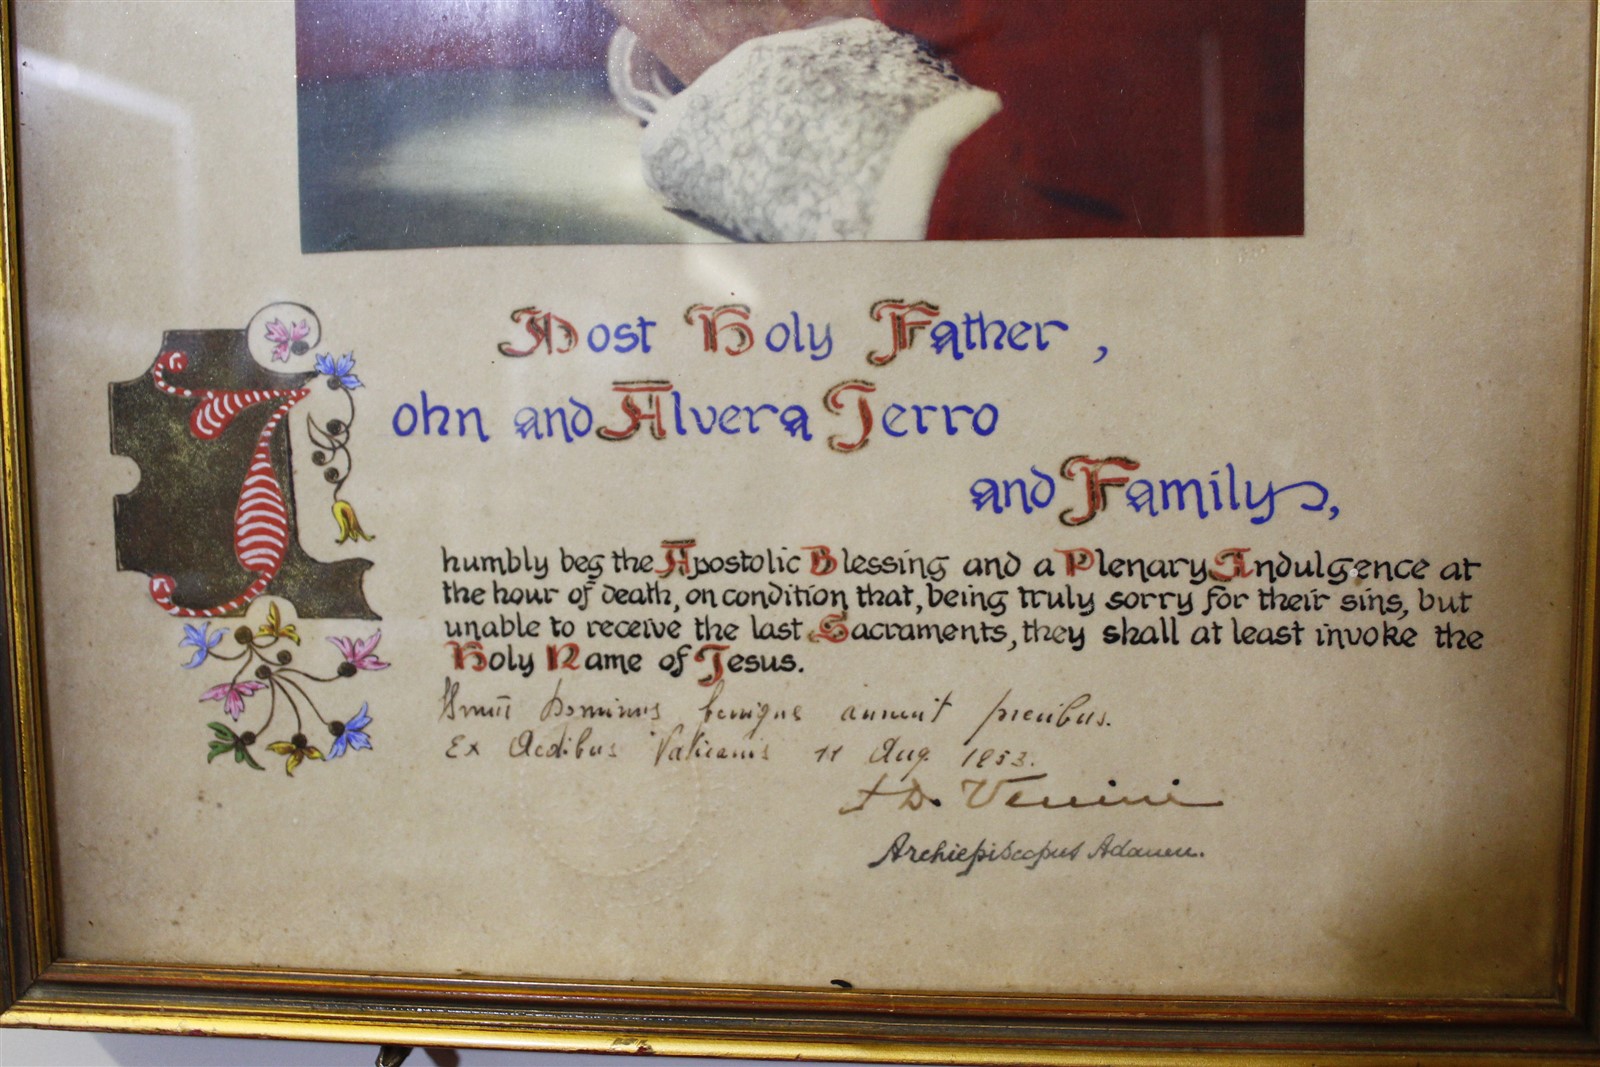 Most Holy Father,
John and Alvera Terro
and Family,
humbly beg the Apostolic Blessing and a Plenary Indulgence at
the hour of death, on condition that, being truly sorry for their sins, but
unable to receive the last Sacraments, they shall at least invoke the
Holy Name of Jesus.
Dominus benigne annuit precibus.
Ex Aedibus Vaticanis 11 Aug. 1953.
+ D. Venini
Archiepiscopus Adanen.